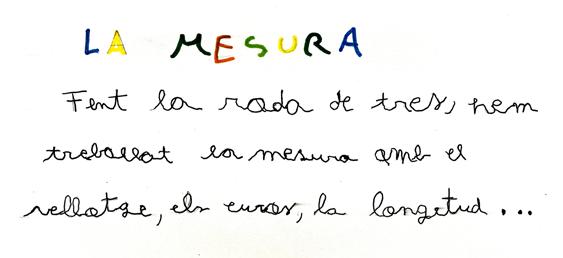 LA MESURA
Fent la roda de tres, hem
treballat la mesura amb el
rellotge, els euros, la longitud...